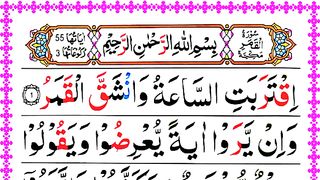 سُوْرَةُ الْقَمَرِ مَكِّيَّةٌ
بِسْمِ اللهِ الرَّحْمٰنِ الرَّحِيْمِ
اٰيَاتُهَا 55 رُكُوْعَاتُهَا 3
اِقْتَرَبَتِ السَّاعَةُ وَانْشَقَّ الْقَمَرُ ١
وَاِنْ يَّرَوْا اٰيَةً يُّعْرِضُوْا وَيَقُوْلُوْا